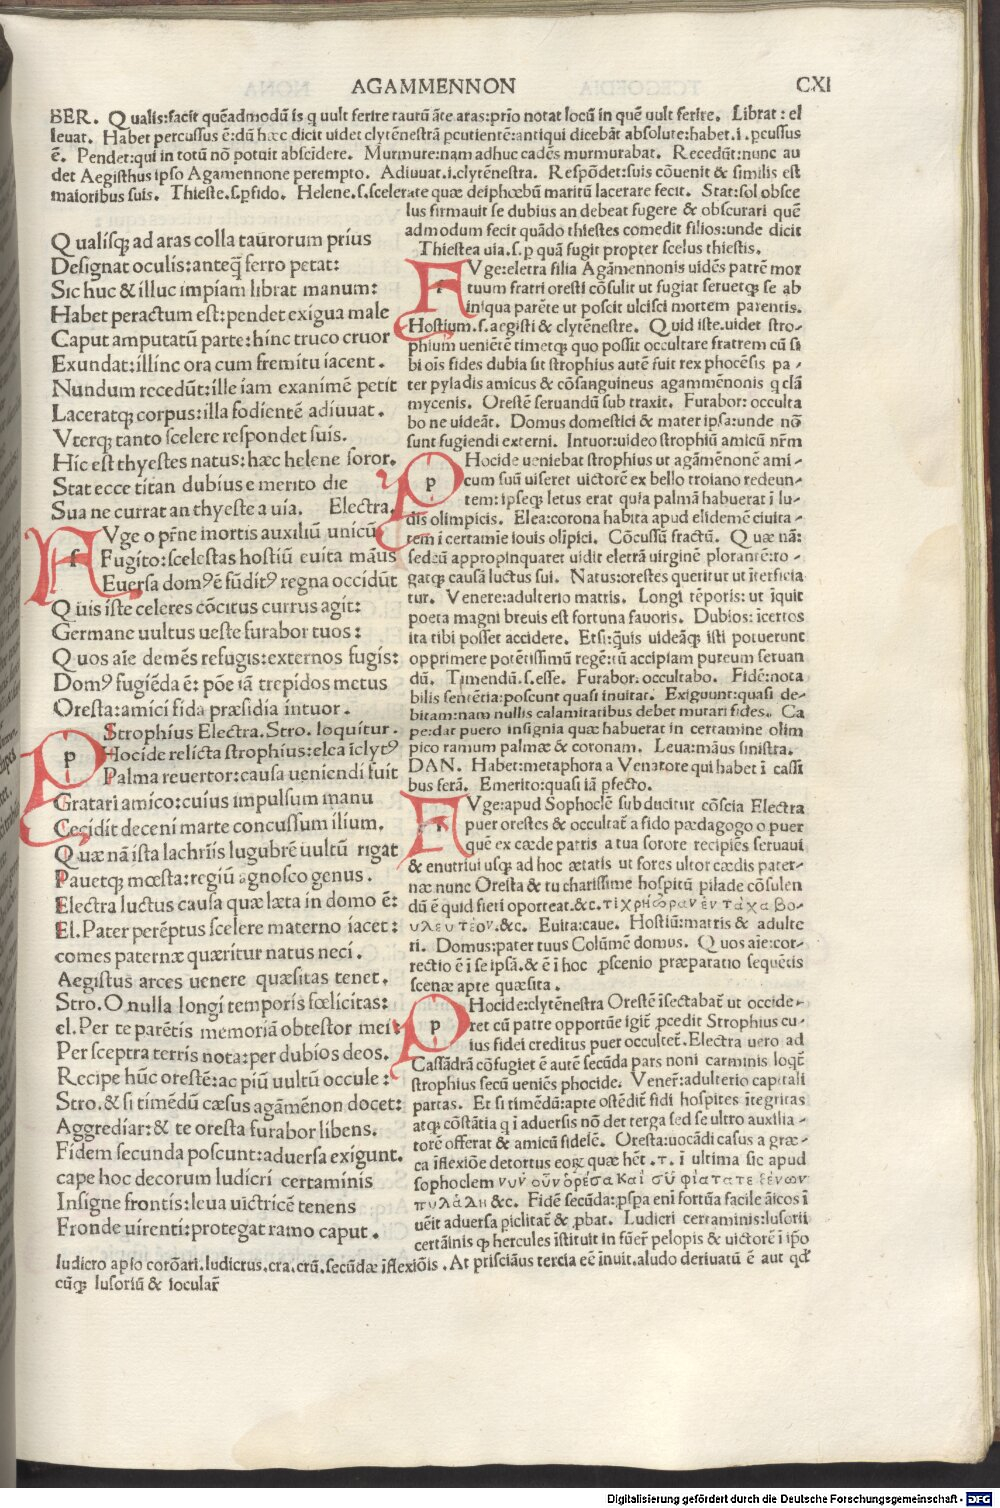 AGAMMENNON
CXI
BER. Qualis:facit quēadmodū is q uult ferire taurū āte aras:prīo notat locū in quē uult ferire. Librat:el
leuat. Habet percussus ē:dū hæc dicit uidet clytēnestrā pcutientē:antiqui dicebāt absolute:habet.i.pcussus
ē. Pendet:qui in totū nō potuit abscidere. Murmure:nam adhuc cadēs murmurabat. Recedūt:nunc au
det Aegisthus ipso Agamennone perempto. Adiuuat.i.clytēnestra. Respōdet:suis cōuenit & similis est
maioribus suis. Thieste.s.pfido. Helene.s.scelerate quæ deiphœbū maritū lacerare fecit. Stat:sol obsce
Qualisq; ad aras colla taurorum prius
Designat oculis:anteq̄ ferro petat:
Sic huc & illuc impiam librat manum:
Habet peractum est:pendet exigua male
Caput amputatū parte:hinc truco cruor
Exundat:illinc ora cum fremitu iacent.
Nundum recedūt:ille iam exanimē petit
Laceratq; corpus:illa fodientē adiuuat.
Vterq; tanto scelere respondet suis.
Hic est thyestes natus:hæc helene soror.
Stat ecce titan dubius e merito die
Sua ne currat an thyeste a uia. Electra.
f
Vge o pr̄ne mortis auxiliū unicū
Fugito:scelestas hostiū euita māus
Euersa domꝰ ē fūditꝰ regna occidūt
Quis iste celeres cōcitus currus agit:
Germane uultus ueste furabor tuos:
Quos aīe demēs refugis:externos fugis:
Domꝰ fugiēda ē: pōe iā trepidos metus
Oresta:amici fida præsidia intuor.
Strophius Electra. Stro. loquitur.
p
Hocide relicta strophius:elca iclytꝰ
Palma reuertor:causa ueniendi fuit
Gratari amico:cuius impulsum manu
Cecidit deceni marte concussum ilium.
Quæ nā ista lachriīs lugubrē uultū rigat
Pauetq; mœsta:regiū agnosco genus.
Electra luctus causa quæ læta in domo ē:
El. Pater perēptus scelere materno iacet:
comes paternæ quæritur natus neci.
Aegistus arces uenere quæsitas tenet.
Stro. O nulla longi temporis fœlicitas:
el. Per te parētis memoriā obtestor mei:
Per sceptra terris nota:per dubios deos.
Recipe hūc orestē:ac piū uultū occule:
Stro. & si timēdū cæsus agāmēnon docet:
Aggrediar:& te oresta furabor libens.
Fidem secunda poscunt:aduersa exigunt.
cape hoc decorum ludicri certaminis
Insigne frontis:leua uictricē tenens
Fronde uirenti:protegat ramo caput.
lus firmauit se dubius an debeat fugere & obscurari quē
admodum fecit quādo thiestes comedit filios:unde dicit
Thiestea uia.s.p quā fugit propter scelus thiestis.
f
Vge:eletra filia Agāmennonis uidēs patrē mor
tuum fratri oresti cōsulit ut fugiat seruetq; se ab
iniqua parēte ut poscit ulcisci mortem parentis.
Hostium.s.aegisti & clytēnestre. Quid iste.uidet stro-
phium ueniētē timetq; quo possit occultare fratrem cū si
bi oīs fides dubia sit strophius autē fuit rex phocēsis pa-
ter pyladis amicus & cōsanguineus agammēnonis q clā
mycenis. Orestē seruandū sub traxit. Furabor: occulta
bo ne uideāt. Domus domestici & mater ipsa:unde nō
sunt fugiendi externi. Intuor:uideo strophiū amicū nr̄m
p
Hocide ueniebat strophius ut agāmēnonē ami-
cum suū uiseret uictorē ex bello troiano redeun-
tem:ipseq; letus erat quia palmā habuerat ī lu-
dis olimpicis. Elea:corona habita apud elidemē ciuita-
tem ī certamīe iouis olīpici. Cōcussū fractū. Quæ nā:
sedeū appropinquaret uidit eletrā uirginē plorantē:ro-
gatq; causā luctus sui. Natus:orestes queritur ut īterficia
tur. Venere:adulterio matris. Longi tēporis: ut īquit
poeta magni breuis est fortuna fauoris. Dubios: īcertos
ita tibi posset accidere. Etsi:q̄uis uideāq; isti potuerunt
opprimere potētissimū regē:tū accipiam pureum seruan
dū. Timendū.s.esse. Furabor:occultabo. Fidē:nota
bilis sentētia:poscunt quasi inuitat. Exigunt:quasi de-
bitam:nam nullis calamitatibus debet mutari fides. Ca
pe:dat puero insignia quæ habuerat in certamine olim
pico ramum palmæ & coronam. Leua:māus sinistra.
DAN. Habet:metaphora a Venatore qui habet ī cassi
bus ferā. Emerito:quasi iā pfecto.
f
Vge:apud Sophoclē subducitur cōscia Electra
puer orestes & occultat̄ a fido pædagogo o puer
quē ex cæde patris a tua sorore recipiēs seruaui
& enutriui usq; ad hoc ætatis ut fores ultor cædis pater-
næ nunc Oresta & tu charissime hospitū pilade cōsulen
dū ē quid fieri oporteat.&c. τί χρὴ δρᾶν ἐν τάχα βο-
υλευτέον.&c. Euita:caue. Hostiū:matris & adulte
ri. Domus:pater tuus Colūmē domus. Quos aīe:cor-
rectio ē ī se ipsā.& ē ī hoc pscenio præparatio sequētis
scenæ apte quæsita.
p
Hocide:clytēnestra Orestē īsectabat̄ ut occide-
ret cū patre opportūe igit̄ pcedit Strophius cu-
ius fidei creditus puer occultet̄. Electra uero ad
Cassādrā cōfugiet ē autē secūda pars noni carminis loqt̄
strophius secū ueniēs phocide. Vener̄:adulterio capitali
partas. Et si timēdū:apte ostēdit fidi hospites ītegritas
atq; cōstātia q ī aduersis nō det terga sed se ultro auxilia-
torē offerat & amicū fidelē. Oresta:uocādi casus a græ-
ca īflexiōe detortus eoꝝ quæ hēt .τ. ī ultima sic apud
sophoclem νῦν οὖν ὀρέσα καὶ σὺ φίλτατε ξένων
πυλάδη &c. Fidē secūda:pspa enī fortūa facile aīcos ī
uēit aduersa piclitat̄ & pbat. Ludicri certaminis:lusorii
certāīnis q; hercules īstituit in fūer̄ pelopis & uictorē ī ipo
ludicro apio corōari.ludicrus.cra.crū.secūdæ īflexiōis. At prisciāus tercia eē inuit.a ludo deriuatū ē aut qd̄
cūq; lusoriū & ioculaȓ
Digitalisierung gefördert durch die Deutsche Forschungsgemeinschaft - DFG